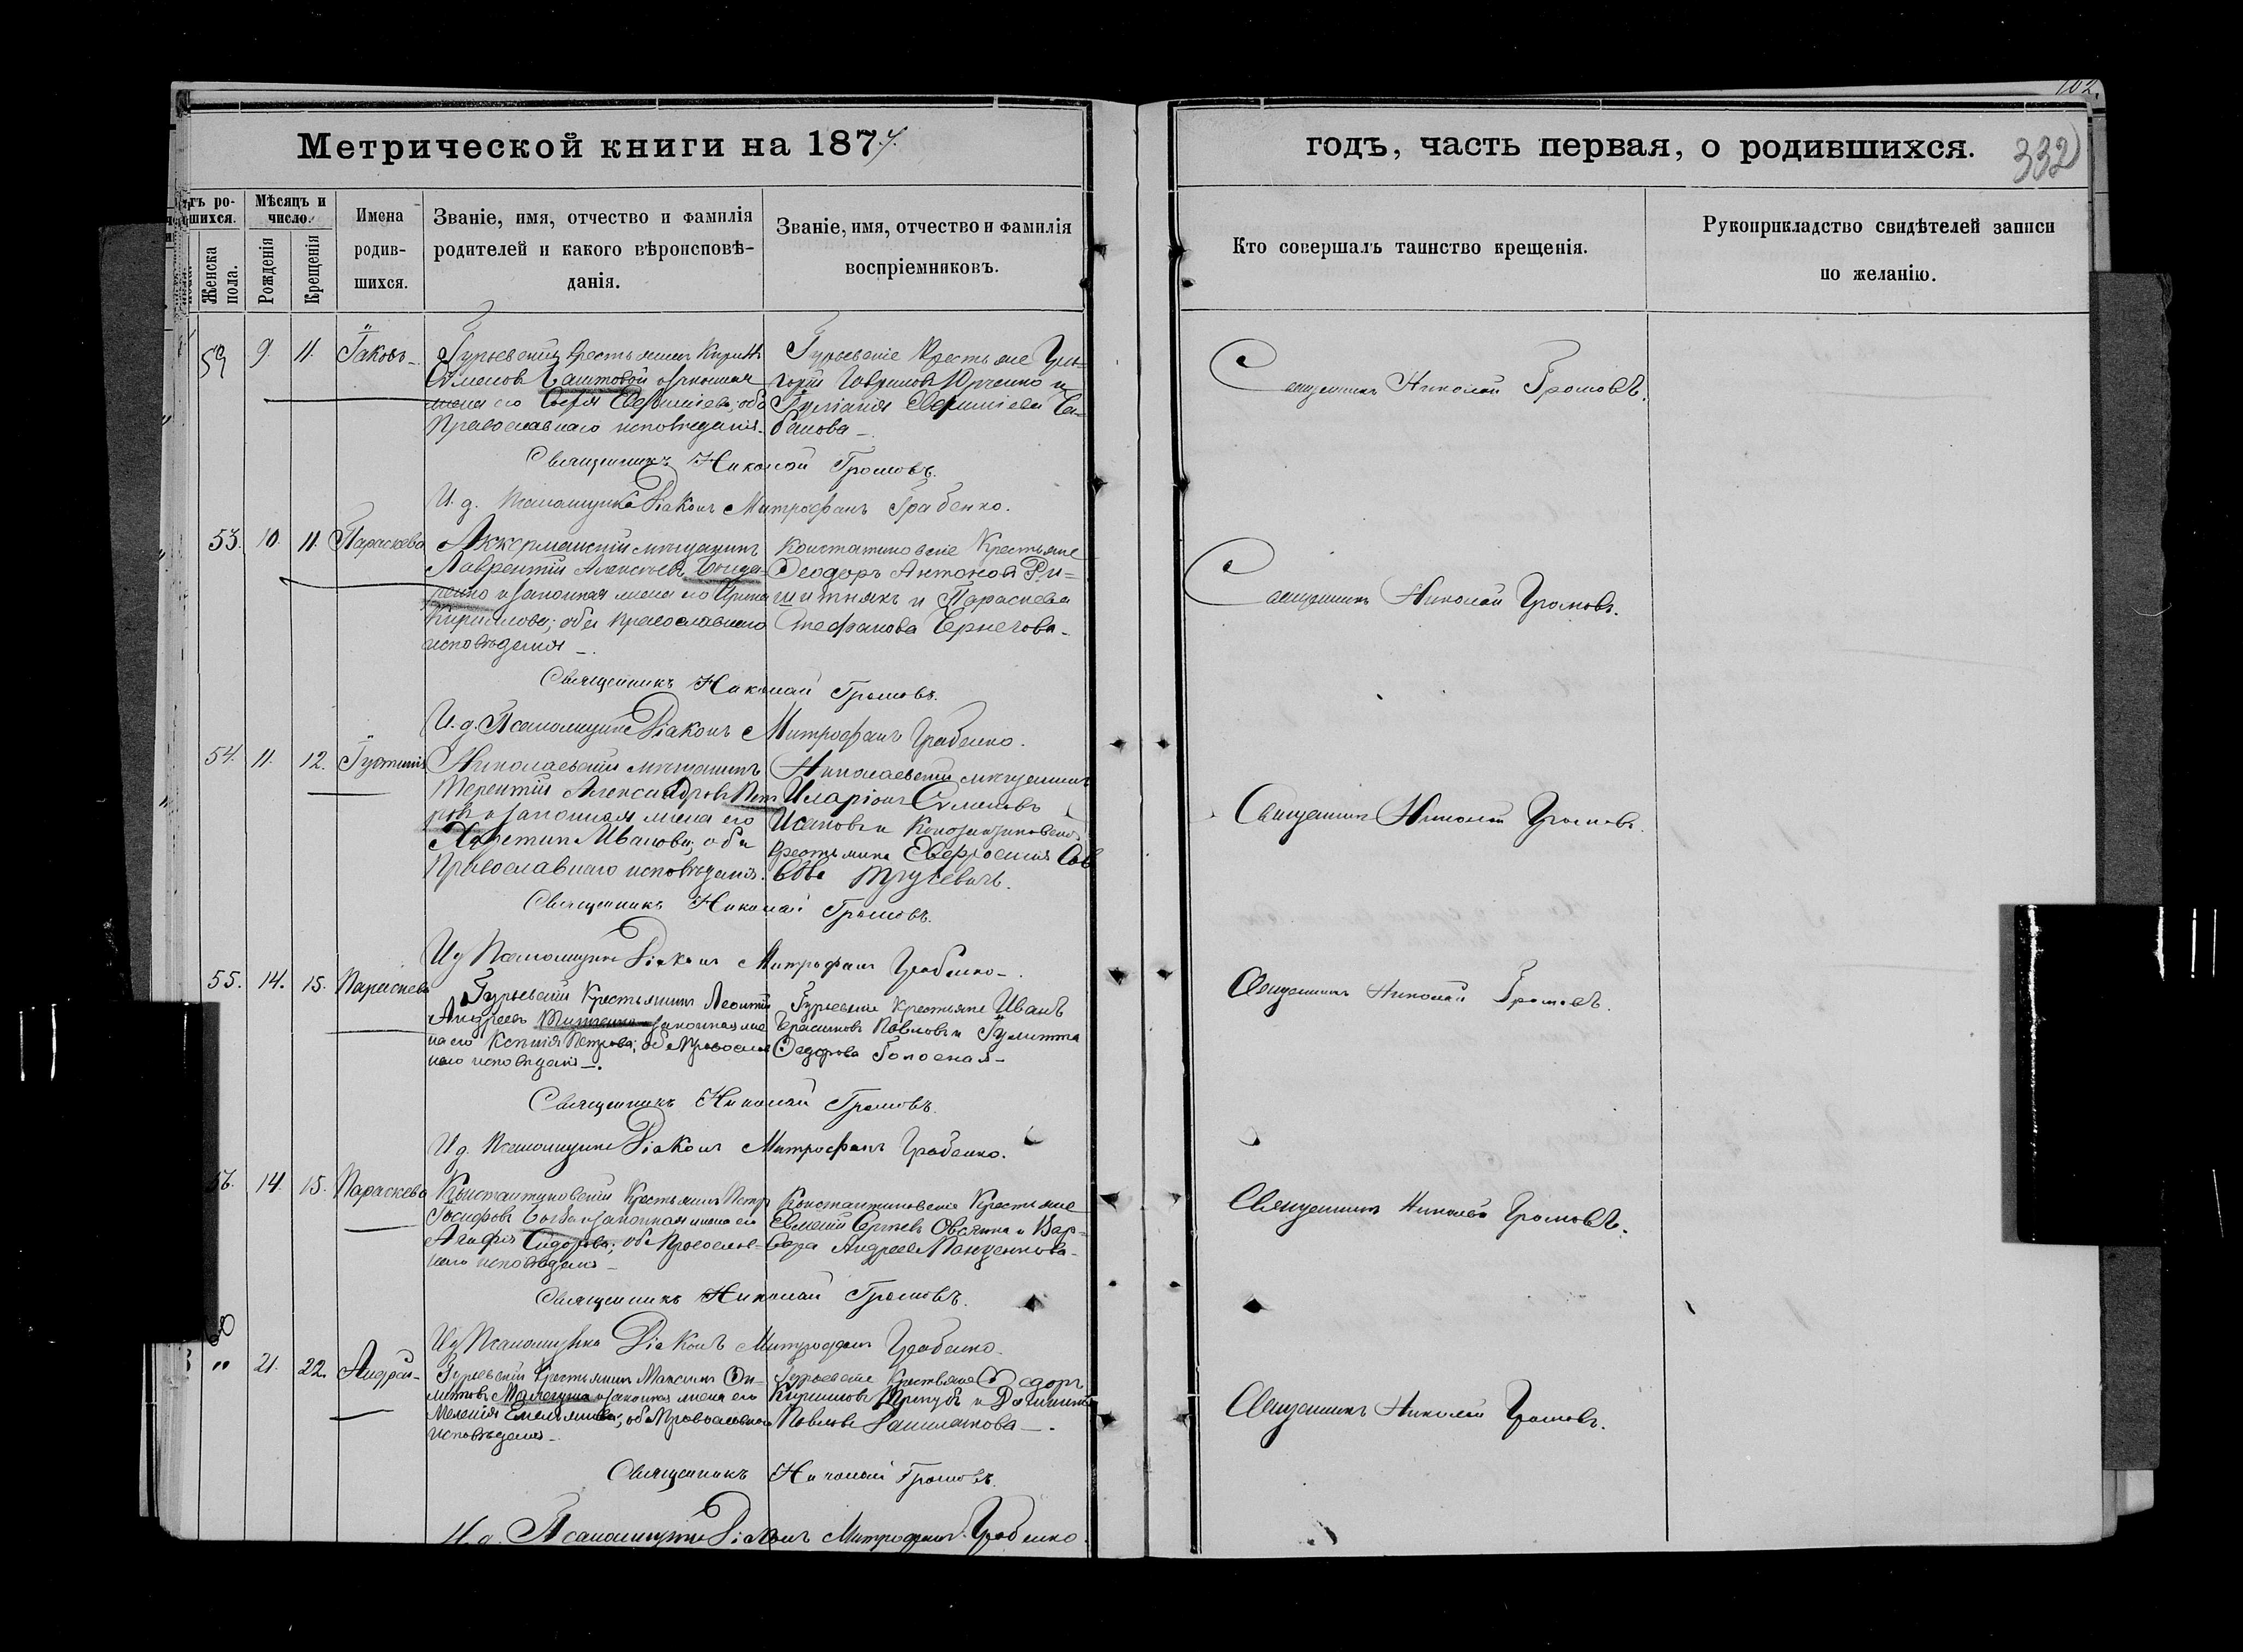 102.
Метрической книги на 1874.
годъ, часть первая, о родившихся.
332
тъ ро-
шихся.
Женска
пола.
Мѣсяцъ и
число.
Рожденія
Крещенія
Имена
родив-
шихся.
Званіе, имя, отчество и фамилія
родителей и какого вѣроисповѣ-
данія.
Званіе, имя, отчество и фамилія
воспріемниковъ.
Кто совершалъ таинство крещенія.
Рукоприкладство свидѣтелей записи
по желанію.
59 9. 11. Іаковъ
Гурьевскій крестьянинъ Кирилъ
Семеновъ законная
жена его Софія оба
Православнаго исповѣданія.
Гурьевскіе Крестьяне Гри-
горій Гавриловъ Юрченко и
Іуліанія
Священникъ Николай Громовъ.
Священникъ Николай Громовъ.
И. д. Псаломщика Діаконъ Митрофанъ Грабенко.
53. 10. 11. Параскева
Аккерманскій мѣщанинъ
Лаврентій Алексѣевъ Бонда-
ренко и законная жена его Ирина
Кириллова; оба Православнаго
исповѣданія
Константиновскіе Крестьяне
Ѳеодоръ Антоновъ Рѣ-
шитнякъ и Параскева
Стефанова Чернегова
Священникъ Николай Громовъ.
Священникъ Николай Громовъ.
И. д. Псаломщика Діаконъ Митрофанъ Грабенко.
54. 11. 12. Іустинія
Николаевскій мѣщанинъ
Терентій Александровъ
и законная жена его
Харитина Иванова; оба
Православнаго исповѣданія.
Николаевскій мѣщанинъ
Иларіонъ Семеновъ
Исаковъ и
крестьянка Евфросинія Сав
вова
Священникъ Николай Громовъ.
Священникъ Николай Громовъ.
И д Псаломщика Діаконъ Митрофанъ Грабенко
55. 14. 15. Параскева
Гурьевскій Крестьянинъ Леонтій
Андреевъ законная же
на его Ксенія Петрова; оба Православ
наго исповѣданія.
Гурьевскіе Крестьяне Иванъ
Герасимовъ Павловъ и Іулитта
Ѳедорова
Священникъ Николай Громовъ.
Священникъ Николай Громовъ.
И д. Псаломщика Діаконъ Митрофанъ Грабенко.
56. 14. 15. Параскева
Константиновскій Крестьянинъ Петръ
Іосифовъ законная жена его
Агафія Сидорова; оба Православ-
наго исповѣданія
Константиновскіе Крестьяне
Евменій Сергѣевъ и Вар-
вара Андреева
Священникъ Николай Громовъ.
Священникъ Николай Громовъ.
И д Псаломщика Діаконъ Митрофанъ Грабенко
60
" 21. 22. Андрей
Гурьевскій Крестьянинъ Максимъ
законная жена его
Меланія Емельянова; оба Православнаго
исповѣданія
Гурьевскіе Крестьяне Ѳедоръ
Кириловъ и
Павлова
Священникъ Николай Громовъ.
Священникъ Николай Громовъ.
И. д. Псаломщика Діаконъ Митрофанъ Грабенко.